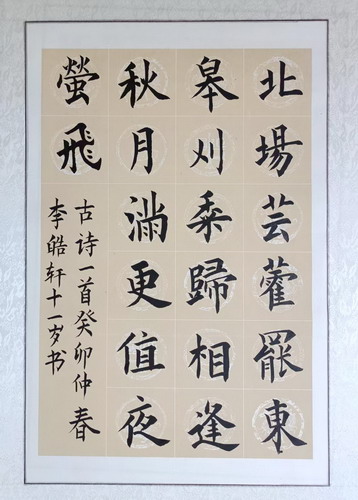 北場芸藿罷東
皋刈黍歸相逢
秋月滿更值夜
螢飛
古诗一首癸卯仲春
李皓轩十一岁书